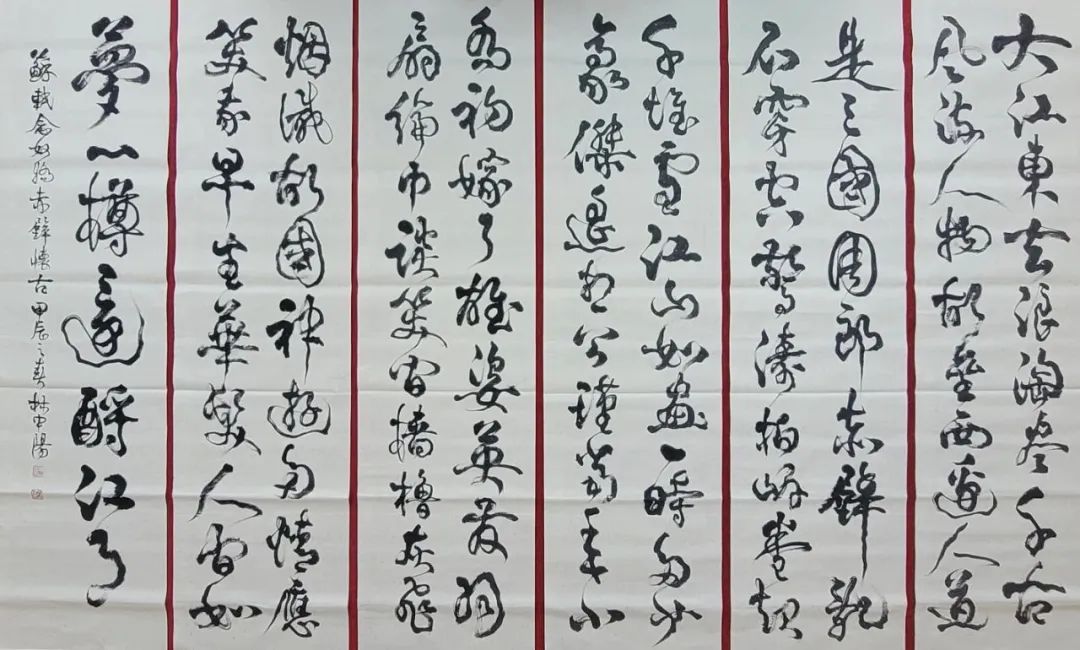 大江東去浪淘尽千古
風流人物故壘西邊人道
是三國周郎赤壁亂
石穿空驚濤拍岸卷起
千堆雪江山如畫一時多少
豪傑遥想公瑾當年小
喬初嫁了雄姿英發羽
扇綸巾談笑間檣櫓灰飛
烟滅故國神遊多情應
笑我早生華髮人間如
夢一樽還酹江月
蘇軾念奴嬌赤壁懷古甲辰之春林中陽